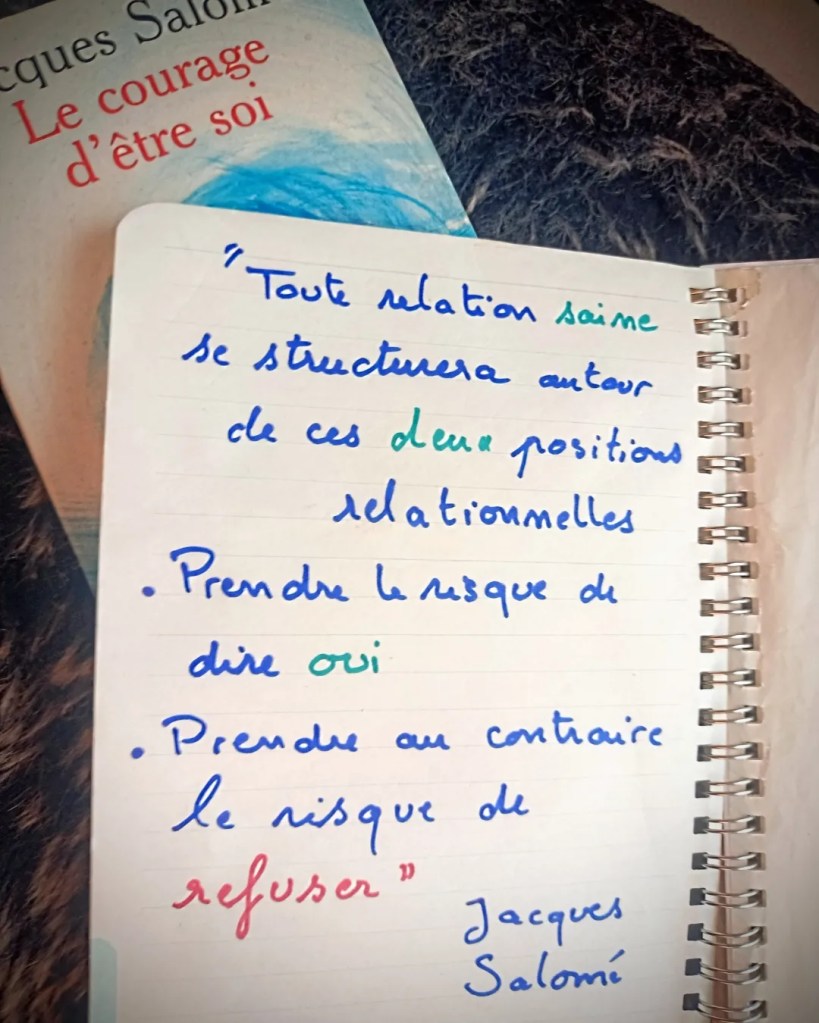 cques Salom
Le courage
d'être soi
"Toute relation saine
se structurera autour
de ces deux positions
relationnelles
• Prendre le risque de
dire oui
• Prendre au contraire
le risque de
refuser"
Jacques
Salomé